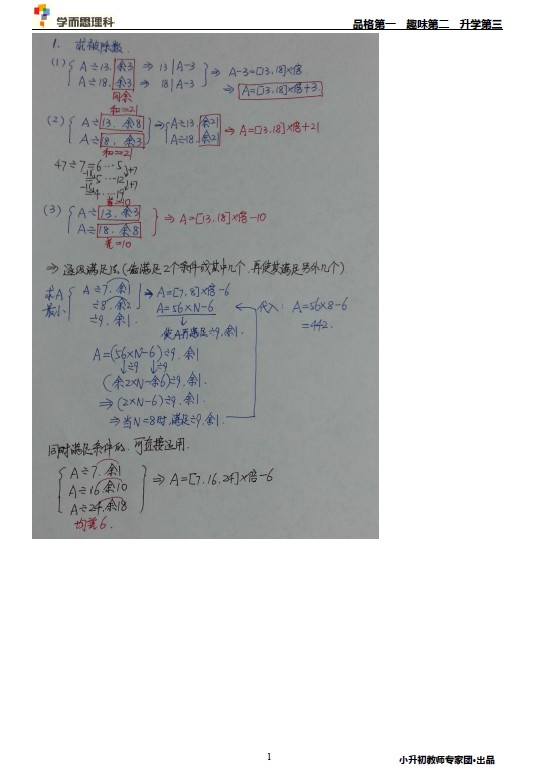 学而思理科
品格第一 趣味第二 升学第三
1. 求被除数.
(1) { A÷13, 余3 ⇒ 13 | A-3
A÷18, 余3 ⇒ 18 | A-3 } ⇒ A-3=[13,18]×倍
⇒ A=[13,18]×倍+3.
同余
和=21
(2) { A÷13, 余8
A÷18, 余3 } ⇒ { A÷13, 余21
A÷18, 余21 ⇒ A=[13,18]×倍+21
和=21
47÷7=6…5
=5…12
=4…19
-1 +7
-1 +7
差=10
(3) { A÷13, 余3
A÷18, 余8 } ⇒ A=[13,18]×倍-10
差=10
⇒ 逐级满足法(先满足2个条件或其中几个,再使其满足另外几个)
求A最小 { A÷7, 余1
÷8, 余2
÷9, 余1. } ⇒ A=[7,8]×倍-6
A=56×N-6
代入: A=56×8-6
=442.
使A再满足÷9, 余1.
A=(56×N-6)÷9, 余1
÷9 ÷9
(余2×N-余6)÷9, 余1.
⇒ (2×N-6)÷9, 余1.
⇒ 当N=8时,满足÷9, 余1.
同时满足条件的, 可直接运用.
{ A÷7, 余1
A÷16, 余10
A÷24, 余18 } ⇒ A=[7,16,24]×倍-6
均差6.
1
小升初教师专家团·出品